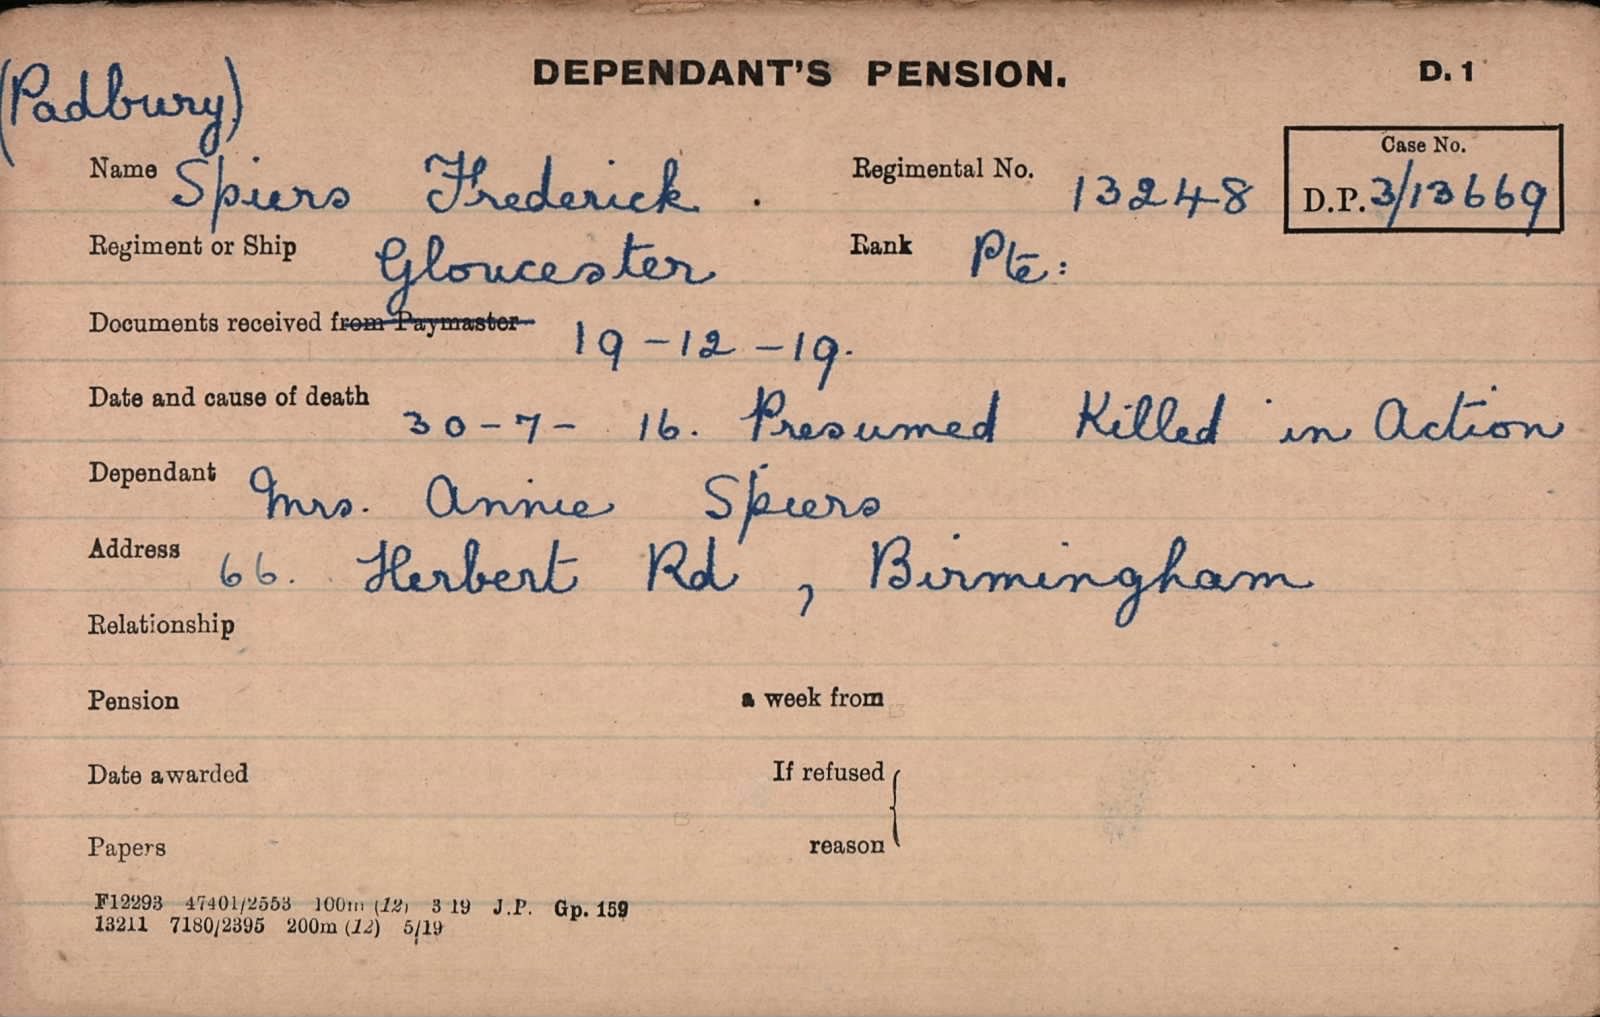 DEPENDANT'S PENSION. D. 1
(Padbury)
Name Spiers Frederick . Regimental No. 13248 Case No. D.P. 3/13669
Regiment or Ship Gloucester Rank Pte:
Documents received from Paymaster 19-12-19.
Date and cause of death 30-7-16. Presumed Killed in Action
Dependant Mrs. Annie Spiers
Address 66. Herbert Rd, Birmingham
Relationship
Pension a week from
Date awarded If refused
Papers reason
F12293 47401/2553 100m (12) 3 19 J.P. Gp. 159
13211 7180/2395 200m (12) 5/19